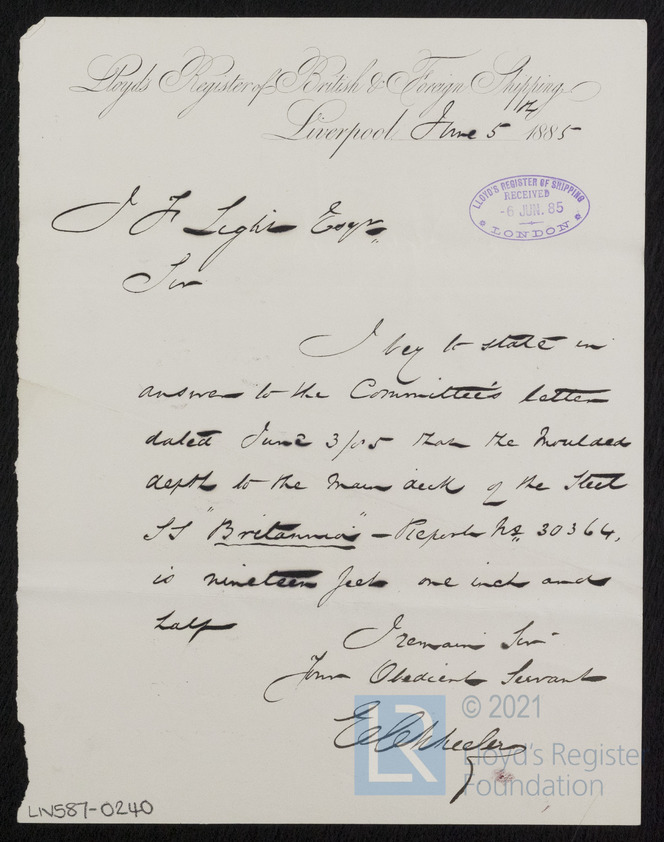 Lloyd's Register of British & Foreign Shipping
Liverpool, June 5th 1885
LLOYD'S REGISTER OF SHIPPING
RECEIVED
-6 JUN. 85
LONDON
J F Light Esqr,
Sir
I beg to state in
answer to the Committee's letter
dated June 3/85 that the Moulded
depth to the Main deck of the Steel
SS "Britannia" - Report No 30364,
is nineteen feet one inch and
half
I remain Sir
Your Obedient Servant
© 2021
LR
Lloyd's Registe
Foundation
LIV587-0240